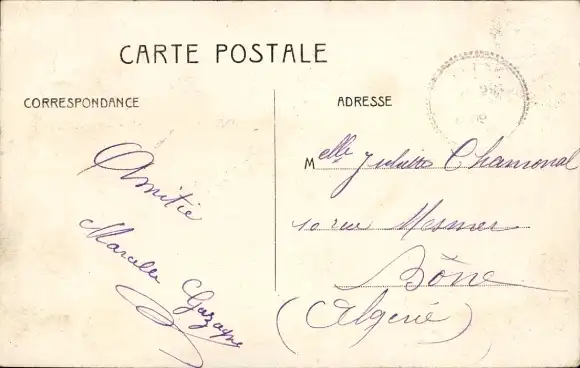 CARTE POSTALE
CORRESPONDANCE
ADRESSE
Amitié
Marcelle Gazagne
Melle Juliette Chamonal
10 rue Mesmer
Bône
(Algérie)